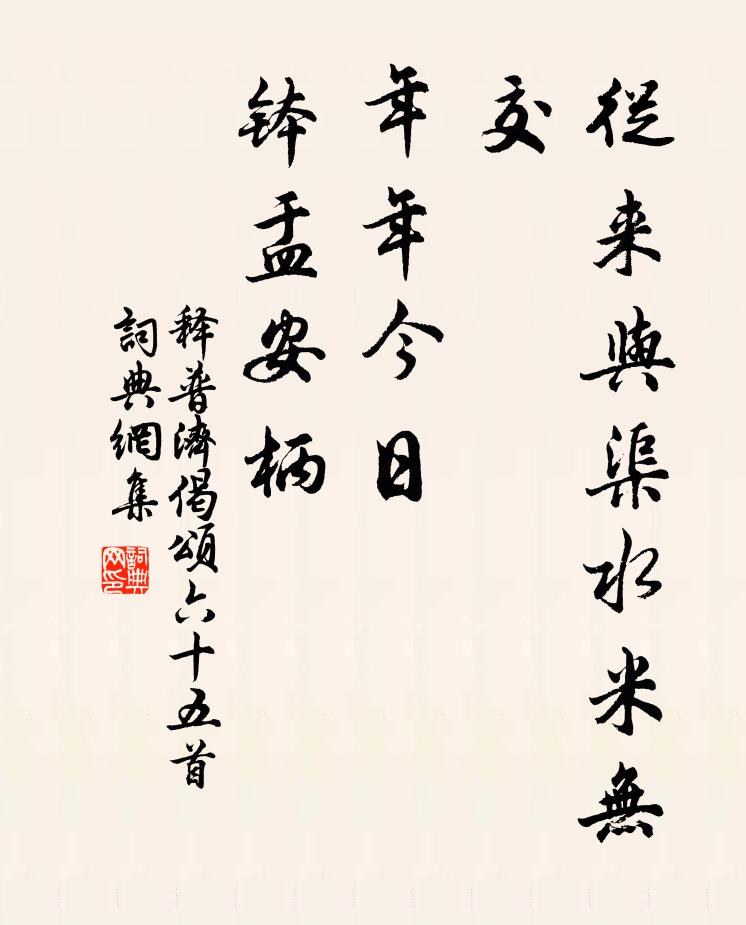 從来與渠水米無
交
年年今日
鉢盂安柄
释普濟偈頌六十五首
詞典網集
詞典網印